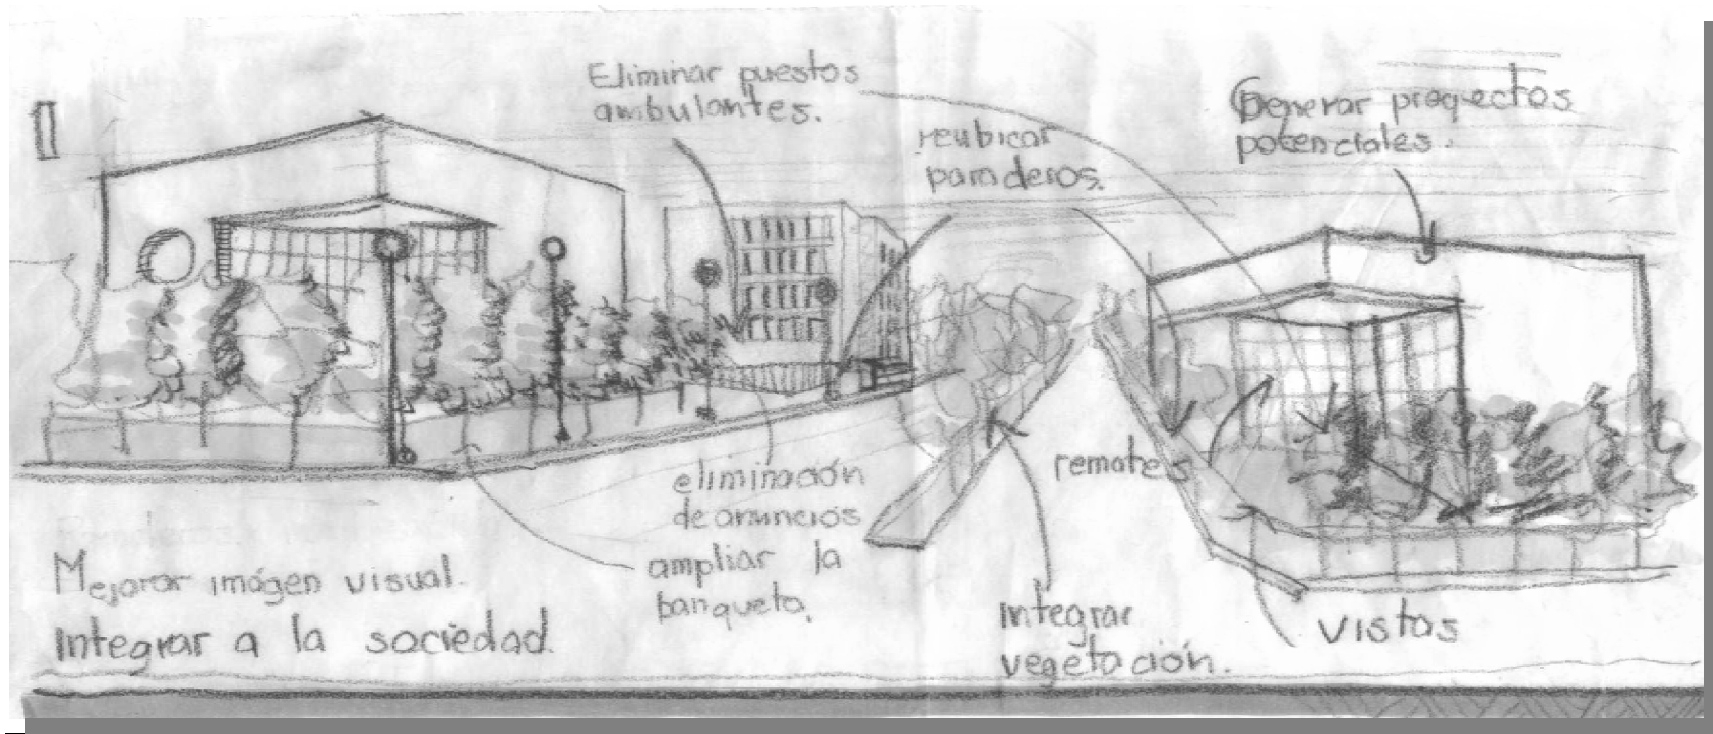 Eliminar puestos
ambulantes.
reubicar
paraderos.
Generar proyectos
potenciales.
remates
eliminación
de anuncios
ampliar la
banqueta.
Mejorar imágen visual.
Integrar a la sociedad.
Integrar
vegetación.
vistas